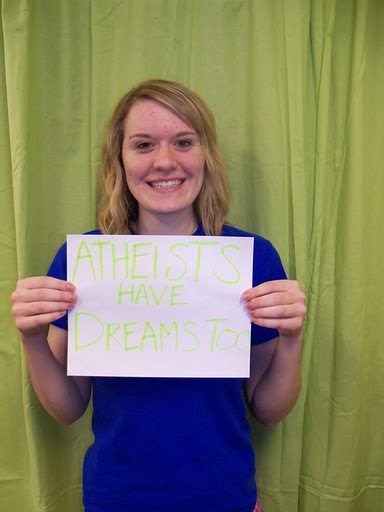 ATHEISTS
HAVE
DREAMS TOO